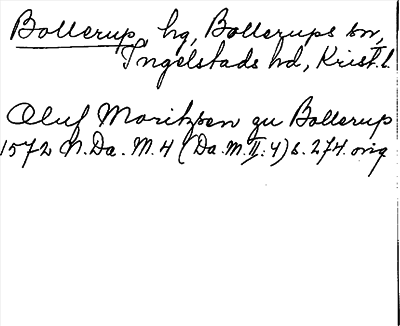 Bollerup, hg, Bollerups sn,
Ingelstads hd, Krist. l.
Oluf Moritzsen zu Bollerup
1572 N. Da. M. 4 (Da. M. II: 4) s. 274. orig